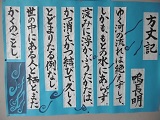 方丈記
鴨長明
ゆく河の流れは絶えずして、
しかも、もとの水にあらず。
淀みに浮かぶうたかたは、
かつ消えかつ結びて、久しく
とどまりたる例なし。
世の中にある人と栖と、また
かくのごとし。